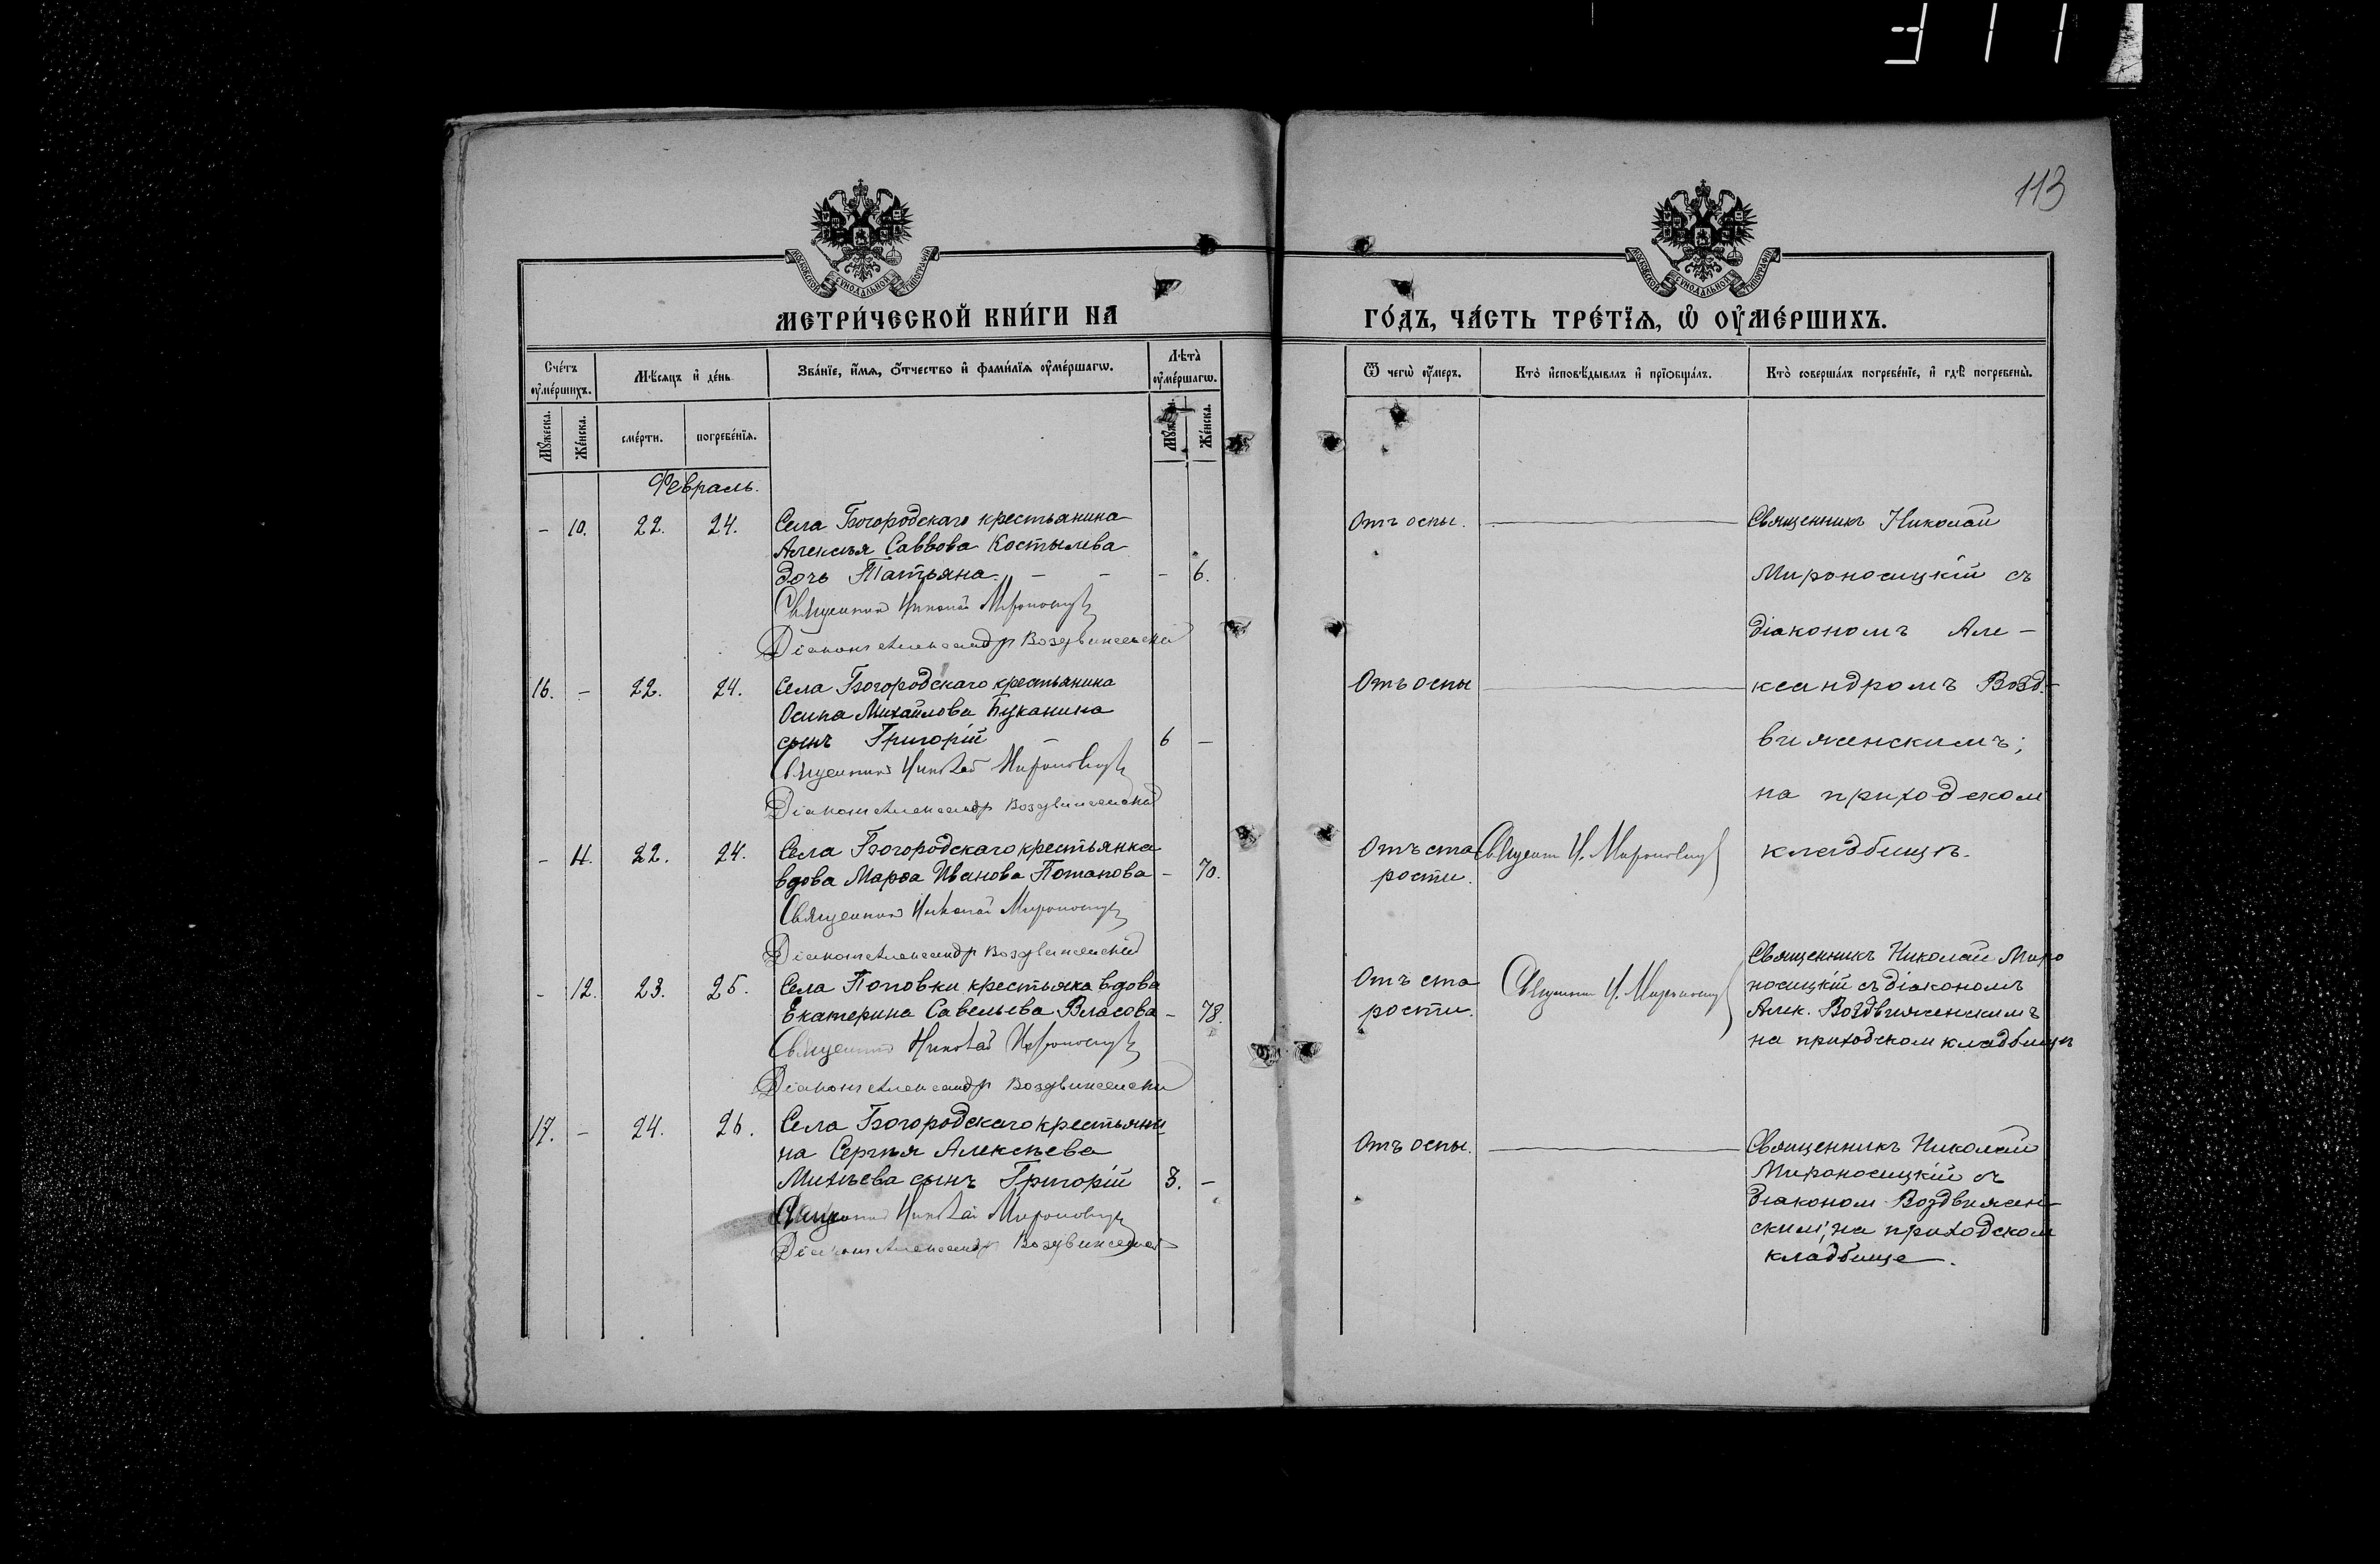 113
МОСКОВСКОЙ СѴНОДАЛЬНОЙ ТИПОГРАФІИ
МОСКОВСКОЙ СѴНОДАЛЬНОЙ ТИПОГРАФІИ
МЕТРИ́ЧЕСКОЙ КНИ́ГИ НА
ГО́ДЪ, ЧА́СТЬ ТРЕ́ТЇѦ, Ѽ ОУ҆МЕ́РШИХЪ.
Сче́тъ оу҆ме́ршихъ.
Мѣ́сѧцъ и҆ де́нь
Зва́нїе, и҆́мѧ, ѻ҆́тчество и҆ фами́лїѧ оу҆ме́ршагѡ.
Лѣта̀ оу҆ме́ршагѡ.
Ѿ чегѡ̀ оу҆́меръ.
Кто̀ и҆сповѣ́дывалъ и҆ прїѡбща́лъ.
Кто̀ соверша́лъ погребе́нїе, и҆ гдѣ̀ погребены̀.
Мꙋ́жеска.
Же́нска.
сме́рти.
погребе́нїѧ.
Мꙋ́ж
Же́нска.
Февраль.
- 10. 22. 24. Села Богородскаго крестьянина
Алексѣя Саввова Костылева
дочь Татьяна. - - - 6.
Священникъ Николай Мироносицкій
Діаконъ Александръ Воздвиженскій
Отъ оспы.
Священникъ Николай
Мироносицкій съ
діакономъ Але-
ксандромъ Возд-
виженскимъ;
на приходском
кладбищѣ.
16. - 22. 24. Села Богородскаго крестьянина
Осипа Михайлова Буканина
сынъ Григорій - 6 -
Священникъ Николай Мироносицкій
Діаконъ Александръ Воздвиженскій
Отъ оспы
- 11. 22. 24. Села Богородскаго крестьянка
вдова Марѳа Иванова Потапова - 70.
Священникъ Николай Мироносицкій
Діаконъ Александръ Воздвиженскій
Отъ ста
рости.
Священ. Н. Мироносицкій
- 12. 23. 25. Села Поповки крестьяка вдова
Екатерина Савельева Власова - 78.
Священникъ Николай Мироносицкій
Діаконъ Александръ Воздвиженскій
Отъ ста
рости.
Священ. Н. Мироносицкій
Священникъ Николай Миро
носицкій съ діакономъ
Алек. Воздвиженскимъ
на приходском кладбищѣ
17. - 24. 26. Села Богородскаго крестьяни
на Сергѣя Алексѣева
Михѣева сынъ Григорій 3. -
Священникъ Николай Мироносицкій
Діаконъ Александръ Воздвиженскій
Отъ оспы.
Священникъ Николай
Мироносицкій съ
діаконом Воздвижен
ским; на приходском
кладбище.